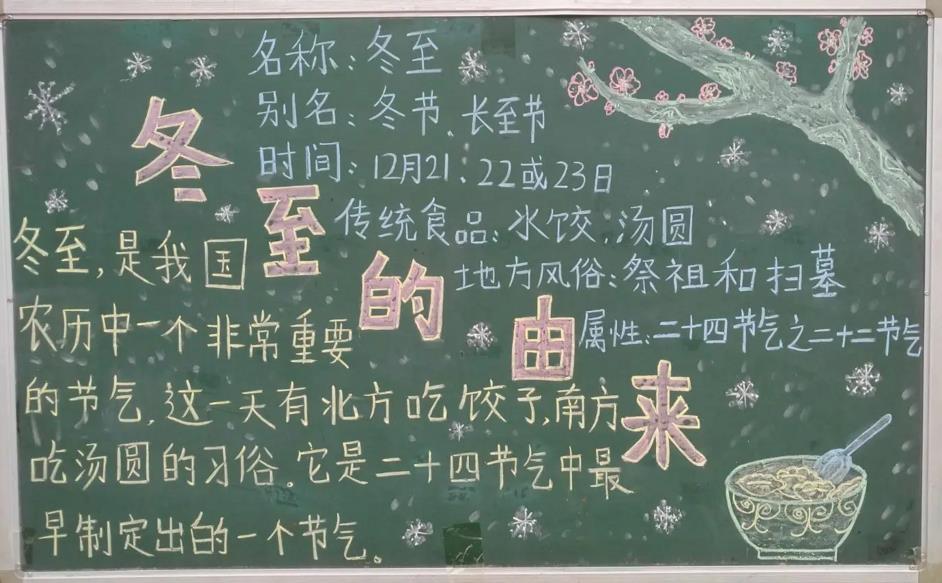 冬至的由来
名称:冬至
别名:冬节、长至节
时间:12月21、22或23日
传统食品:水饺、汤圆
地方风俗:祭祖和扫墓
属性:二十四节气之二十二节气
冬至,是我国
农历中一个非常重要
的节气,这一天有北方吃饺子,南方
吃汤圆的习俗。它是二十四节气中最
早制定出的一个节气。